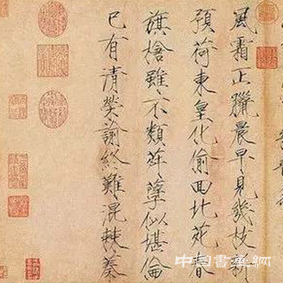 風霜正臘晨早見幾枝新
預荷東皇化偷回北苑春
旗槍雖不類荈孽似堪倫
已有清榮諭終難混棘蓁
中国書画網